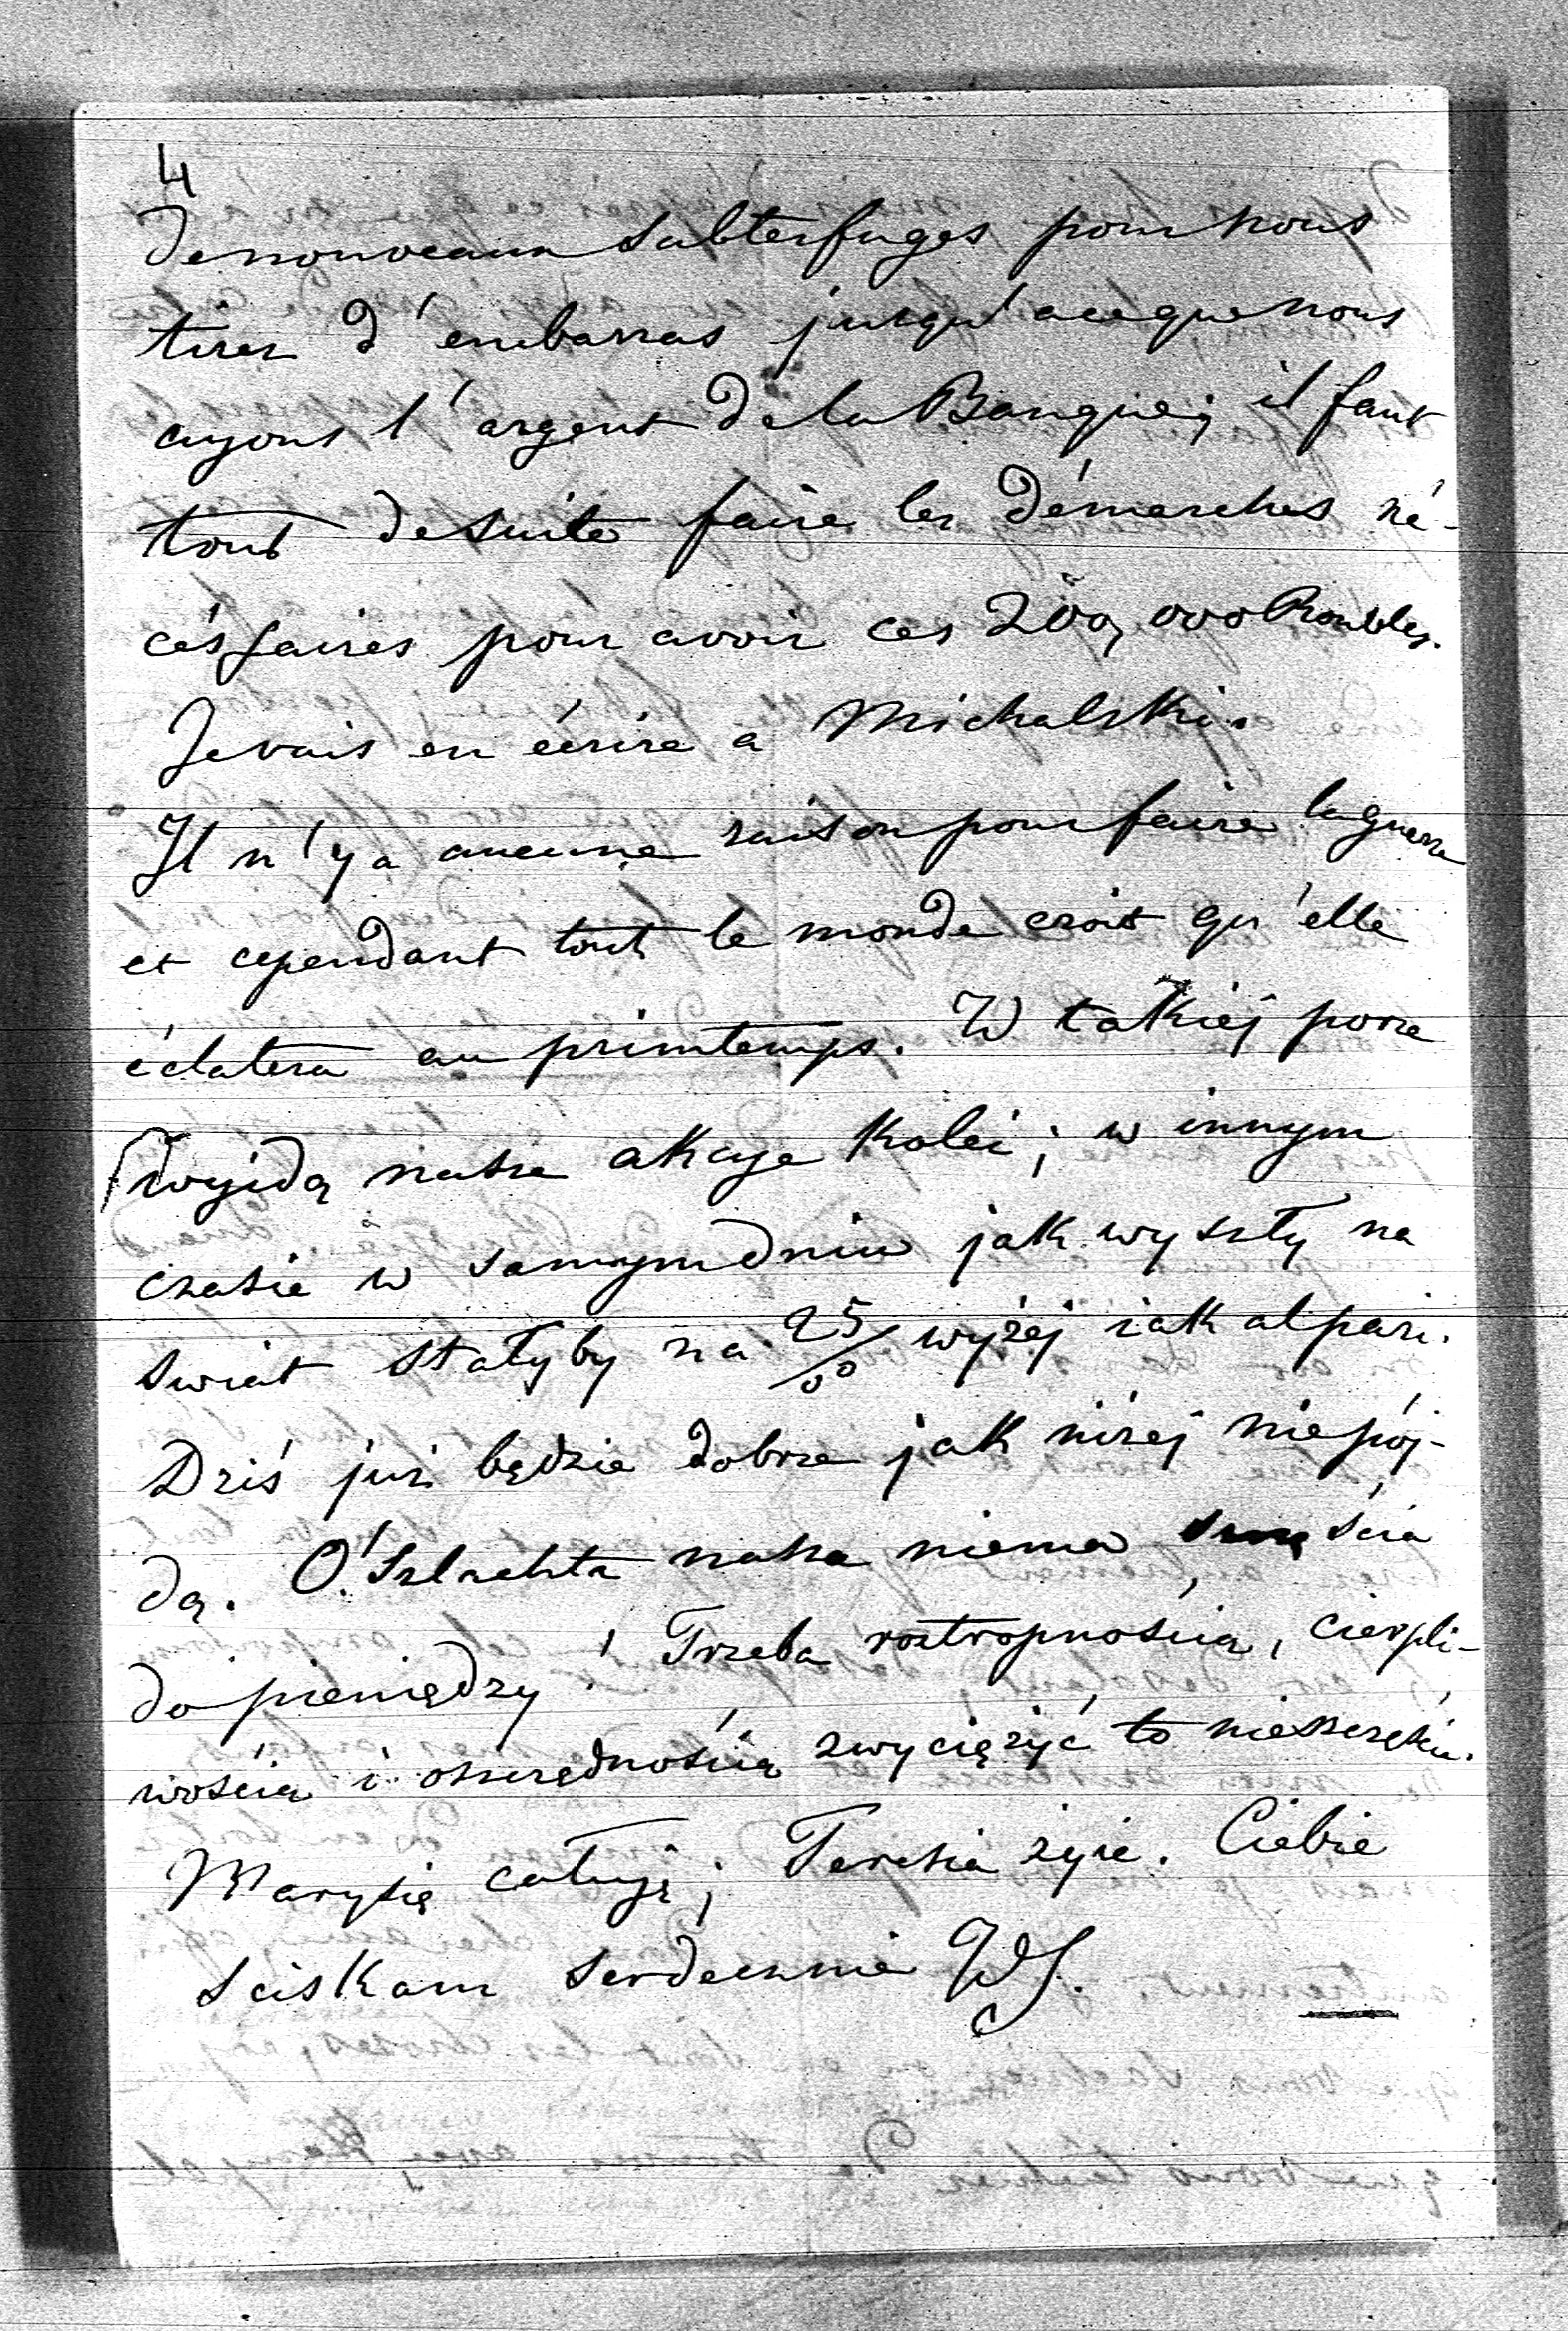 4
de nouveaux subterfuges pour nous
tirer d'embarras jusqu'à ce que nous
ayons l'argent de la Banque; il faut
tout de suite faire les démarches né-
céssaires pour avoir ces 200,000 Roubles.
Je vais en écrire a Michalski.
Il n'y a aucune raison pour faire la guerre
et cependant tout le monde croit qu'elle
éclatera au printemps. W takiéj porze
wyjdą nasze akcye kolei; w innym
czasie w samym dniu jak wyszły na
swiat stałyby na 25 % wyżéj jak alpari.
Dziś już będzie dobrze jak niżéj niepój-
dą. O! Szlachta nasza niema szczęścia
do pieniędzy! Trzeba roztropnością, cierpli-
wością i oszczędnością zwyciężyć to nieszczęście.
Marysię całuję; Teresia żyje. Ciebie
sciskam serdecznie